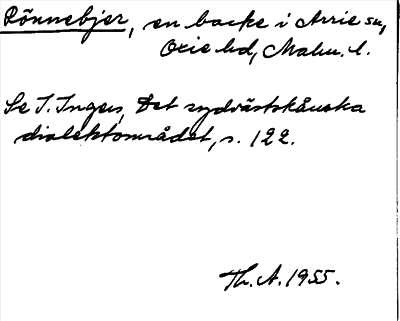 Rönnebjer, en backe i Arrie sn,
Oxie hd, Malm. l.
Se I. Ingers, Det sydvästskånska
dialektområdet, s. 122.
Th. A. 1955.